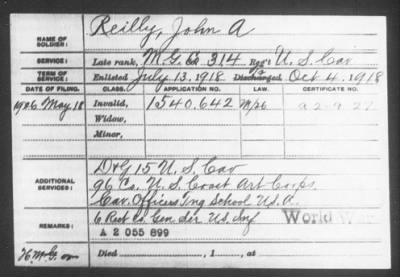 NAME OF SOLDIER: Reilly, John A
SERVICE: Late rank, M.G. Co 314 Reg't U.S. Cav
TERM OF SERVICE: Enlisted July 13, 1918 Discharged Oct 4, 1918
DATE OF FILING. CLASS. APPLICATION NO. LAW. CERTIFICATE NO.
1926 May 18 Invalid, 1540,642 A-2-9-27
Widow,
Minor,
ADDITIONAL SERVICES: D & G 15 U.S. Cav
96 Co. U.S. Coast Art Corps.
Cav. Officers Tng School U.S.A.
REMARKS: 6 Rect Co. Gen. Ser. U.S. Inf World War
A 2 055 899
Died , 1 , at